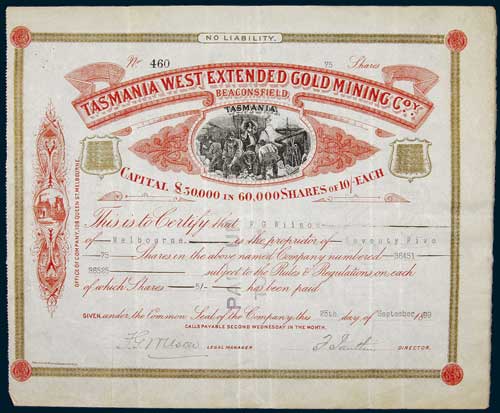 NO LIABILITY.
No 460 75 Shares
TASMANIA WEST EXTENDED GOLD MINING COY.
BEACONSFIELD,
TASMANIA.
CAPITAL £30,000 IN 60,000 SHARES OF 10/- EACH
This is to Certify that F G Wilson
of Melbourne is the proprietor of Seventy Five
75 Shares in the above named Company numbered 36451
36525 subject to the Rules & Regulations on each
of which Shares 5/- has been paid
GIVEN under the Common Seal of the Company, this 25th day of September 1899
CALLS PAYABLE SECOND WEDNESDAY IN THE MONTH.
LEGAL MANAGER
DIRECTOR.
OFFICE OF COMPANY, 108 QUEEN ST. MELBOURNE.